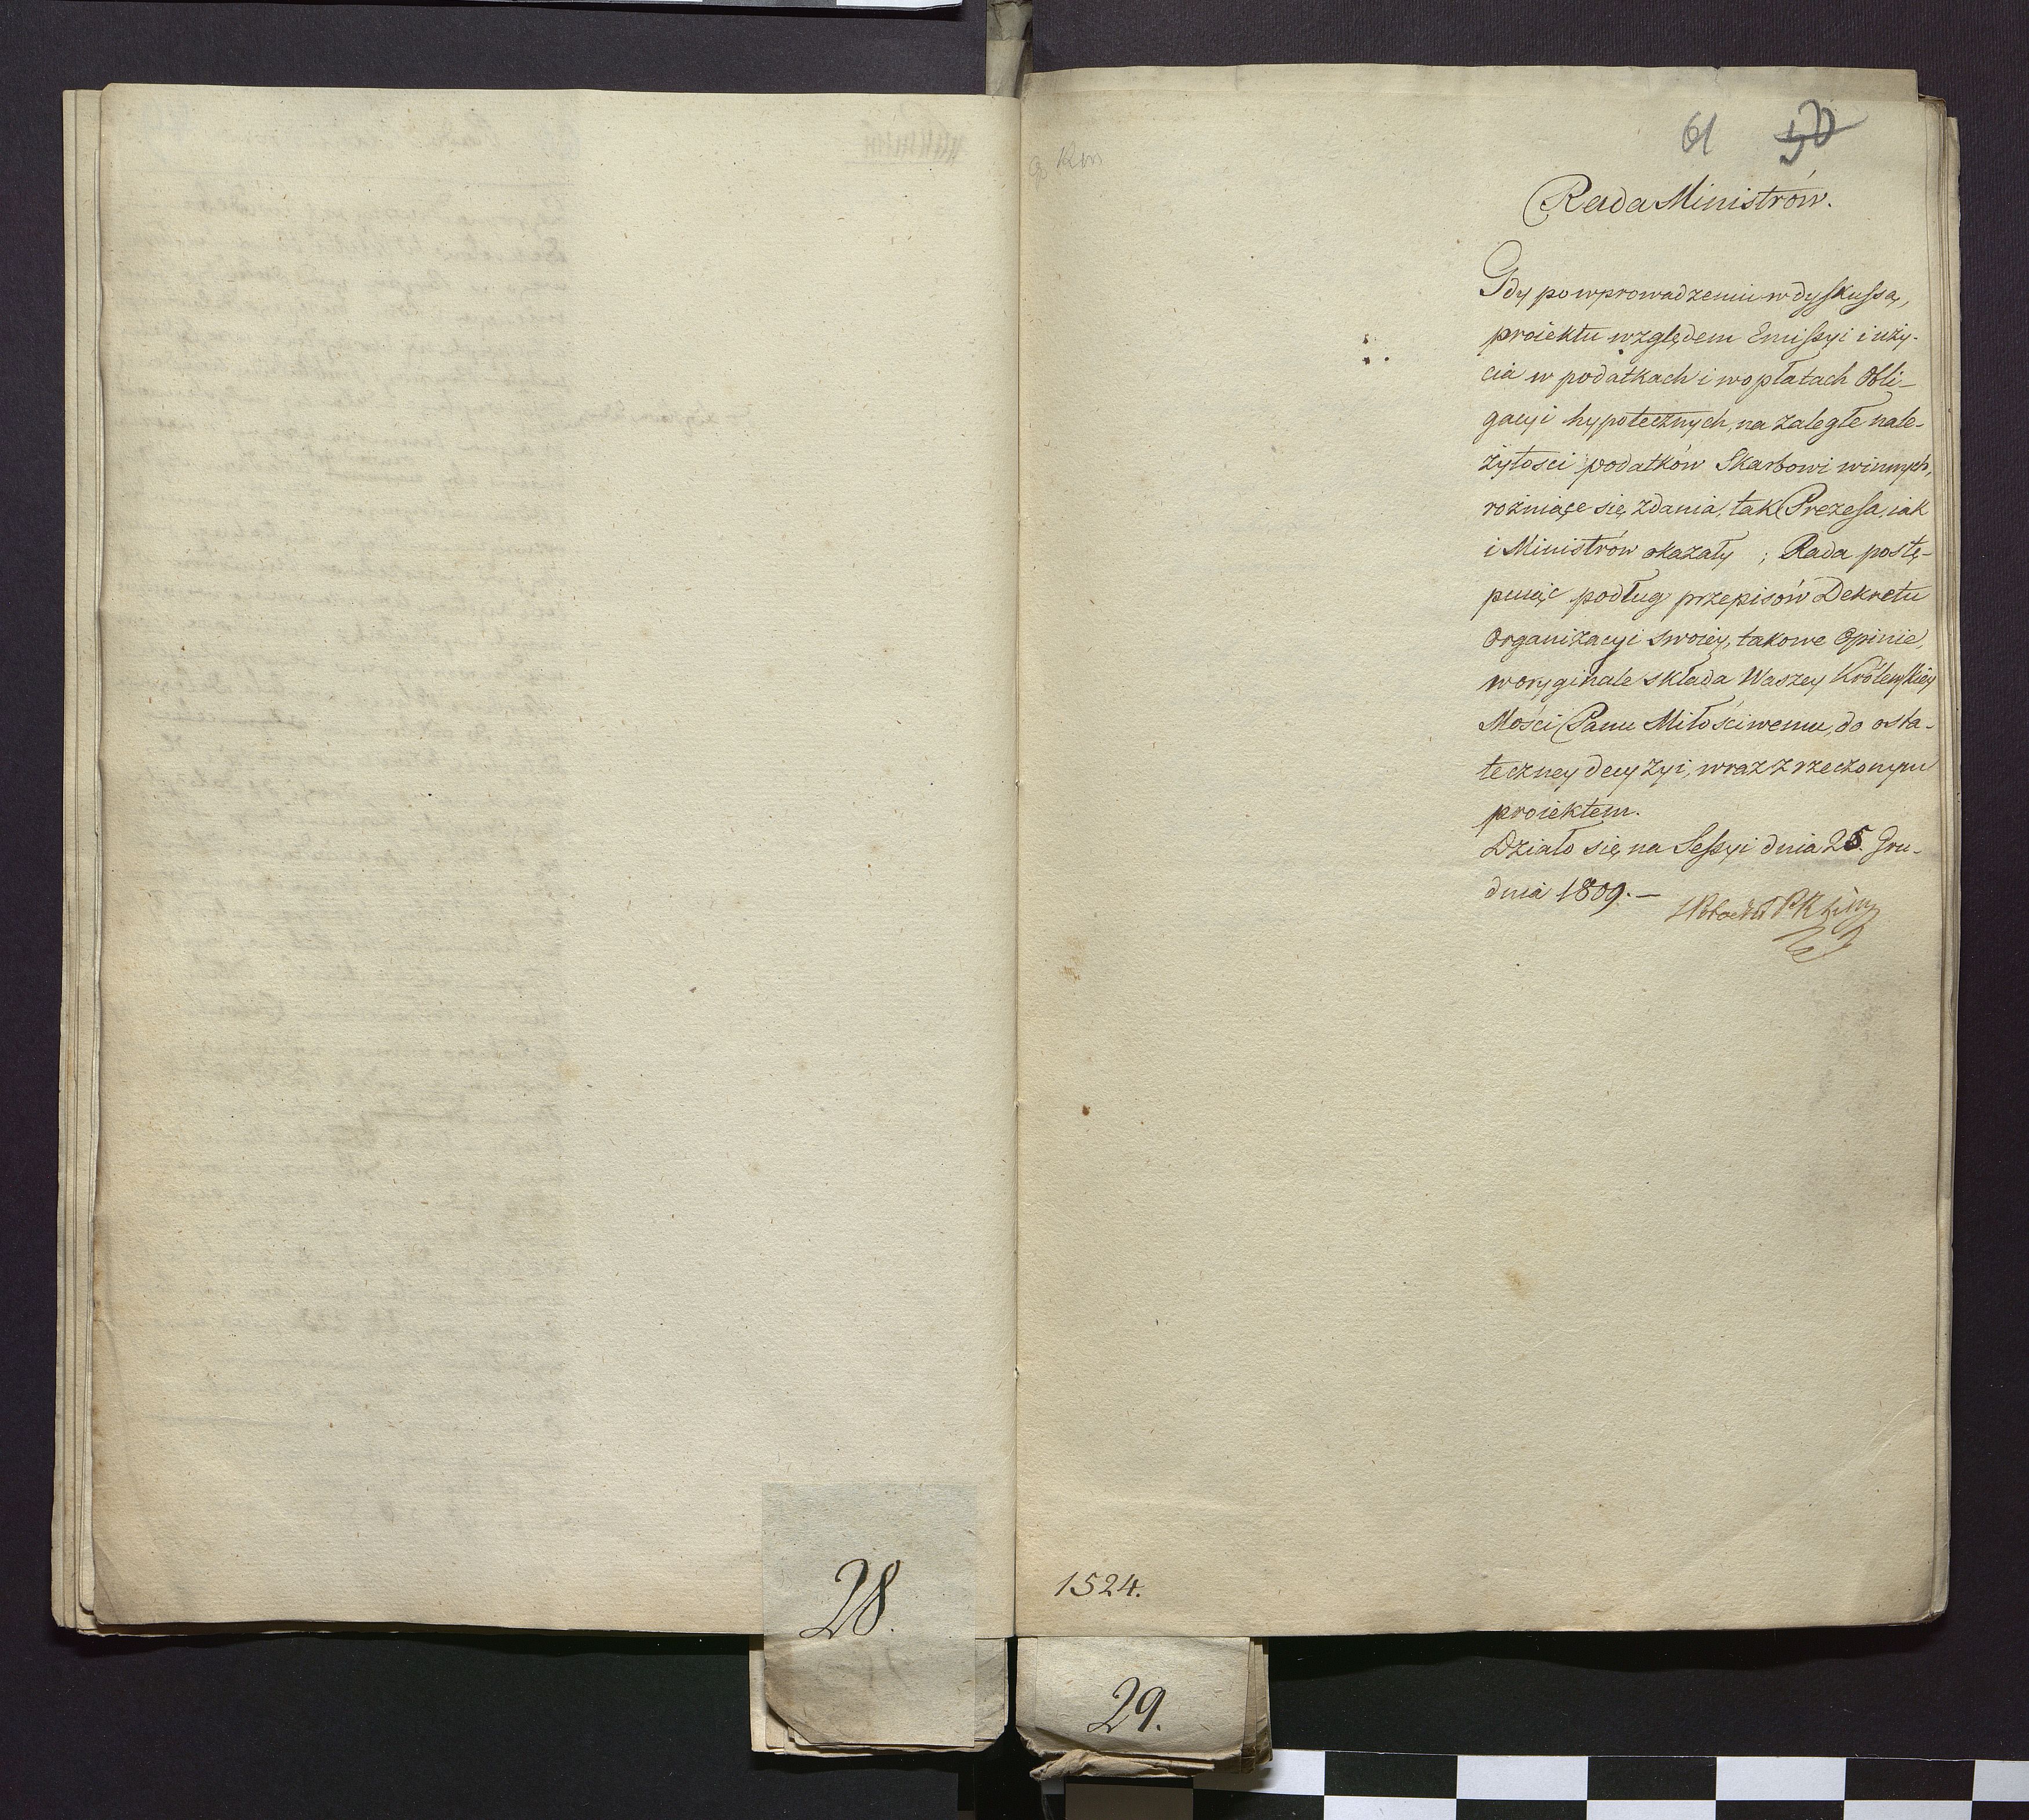 61 50
Rada Ministrów.
Gdy po wprowadzeniu w dyskussą,
proiektu względem Emissyi i uży-
cia w podatkach i w opłatach Obli-
gacyi hypotecznych, na zaległe nale-
żytosci podatków Skarbowi winnych,
rożniące się zdania, tak Prezesa, iak
i Ministrów okazały ; Rada postę-
puiąc podług przepisów Dekretu
Organizacyi swoiey, takowe Opinie,
w oryginale składa Waszey Królewskiey
Mości Panu Miłościwemu, do osta-
teczney decyzyi, wraz z rzeczonym
proiektem.
Działo się na Sessyi dnia 25. Gru-
dnia 1809. —
1524.
28.
29.